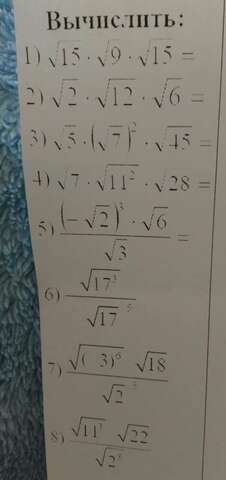 Вычислить:
1) √15 · √9 · √15 =
2) √2 · √12 · √6 =
3) √5 · (√7)² · √45 =
4) √7 · √11² · √28 =
5) (−√2)³ · √6 / √3 =
6) √17³ / √17
7) √( 3)⁶ √18 / √2
8) √22